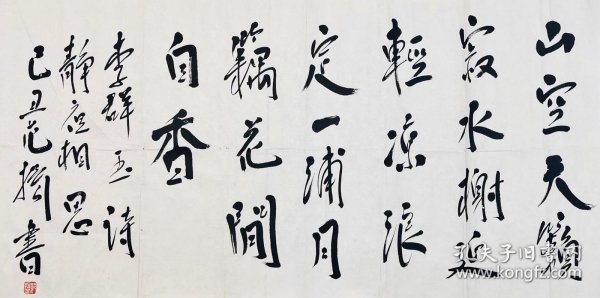 山空天籟
寂水榭延
輕凉浪
定一浦月
藕花閒
自香
李群玉詩
靜夜相思
己丑范書
孔夫子旧书网
www.kongfz.com